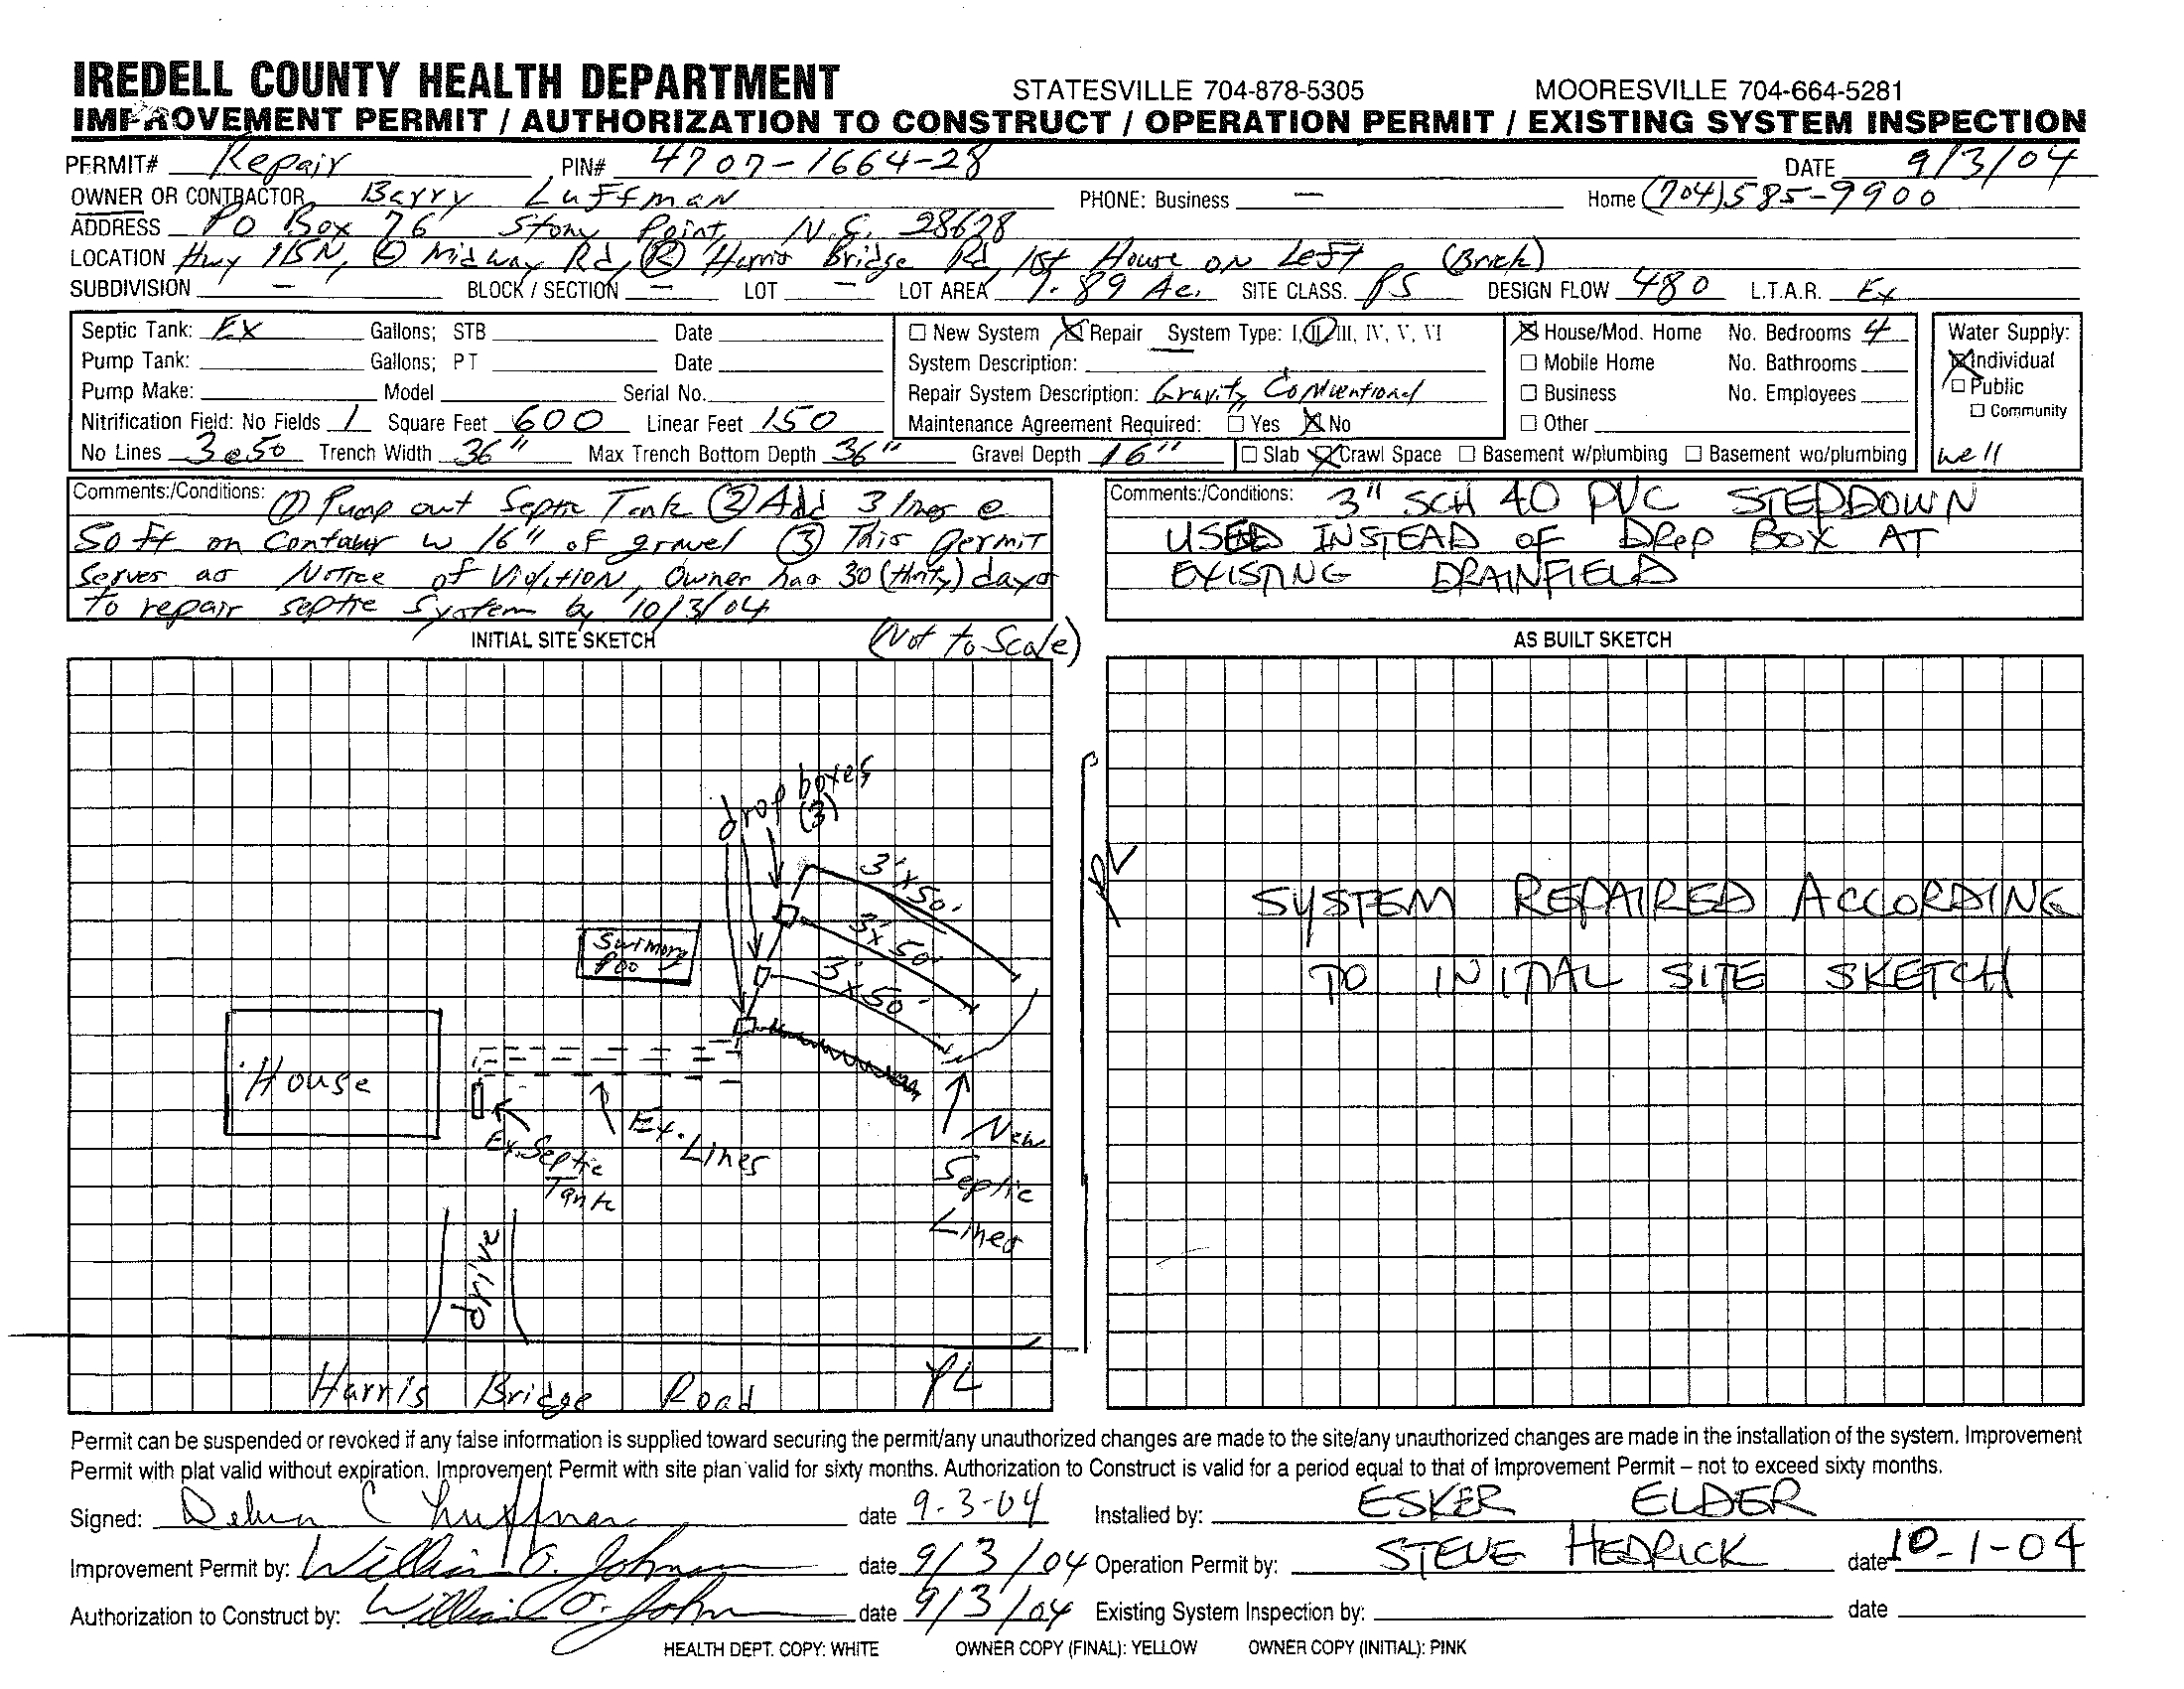 IREDELL COUNTY HEALTH DEPARTMENT STATESVILLE 704-878-5305 MOORESVILLE 704-664-5281
IMPROVEMENT PERMIT / AUTHORIZATION TO CONSTRUCT / OPERATION PERMIT / EXISTING SYSTEM INSPECTION
PERMIT# Repair PIN# 4707-1664-28 DATE 9/3/04
OWNER OR CONTRACTOR Barry Luffman PHONE: Business — Home (704) 585-9900
ADDRESS PO Box 76 Stony Point, N.C. 28678
LOCATION Hwy 115N, Midway Rd, Ⓡ Harris Bridge Rd, 1st House on Left (Brick)
SUBDIVISION — BLOCK / SECTION — LOT — LOT AREA 7.89 Ac. SITE CLASS. PS DESIGN FLOW 480 L.T.A.R. Ex
Septic Tank: EX Gallons; STB Date ☐ New System ☒ Repair System Type: I, II, III, IV, V, VI ☒ House/Mod. Home No. Bedrooms 4 Water Supply:
Pump Tank: Gallons; PT Date System Description: ☐ Mobile Home No. Bathrooms ☒ Individual
Pump Make: Model Serial No. Repair System Description: Gravity Conventional ☐ Business No. Employees ☐ Public
Nitrification Field: No Fields 1 Square Feet 600 Linear Feet 150 Maintenance Agreement Required: ☐ Yes ☒ No ☐ Other ☐ Community
No Lines 3@50 Trench Width 36" Max Trench Bottom Depth 36" Gravel Depth 16" ☐ Slab ☒ Crawl Space ☐ Basement w/plumbing ☐ Basement wo/plumbing well
Comments:/Conditions: ① Pump out Septic Tank ② Add 3 lines @
50 ft on Contour w 16" of gravel ③ This permit
serves as Notice of Violation, Owner has 30 (thirty) days
to repair septic system by 10/3/04
Comments:/Conditions: 3" SCH 40 PVC STEPDOWN
USED INSTEAD OF DROP BOX AT
EXISTING DRAINFIELD
INITIAL SITE SKETCH (Not to Scale) AS BUILT SKETCH
drop boxes
(3)
3'x50'
3'x50'
3'x50'
Swimming
Poo
House
Ex. Septic
Tank
Ex. Lines
New
Septic
Lines
drive
Harris Bridge Road PL
PL
SYSTEM REPAIRED ACCORDING
TO INITIAL SITE SKETCH
Permit can be suspended or revoked if any false information is supplied toward securing the permit/any unauthorized changes are made to the site/any unauthorized changes are made in the installation of the system. Improvement
Permit with plat valid without expiration. Improvement Permit with site plan valid for sixty months. Authorization to Construct is valid for a period equal to that of Improvement Permit – not to exceed sixty months.
Signed: C Luffman date 9-3-04 Installed by: ESKER ELDER
Improvement Permit by: William O. Johnson date 9/3/04 Operation Permit by: STEVE HEDRICK date 10-1-04
Authorization to Construct by: William O. John date 9/3/04 Existing System Inspection by: date
HEALTH DEPT. COPY: WHITE OWNER COPY (FINAL): YELLOW OWNER COPY (INITIAL): PINK